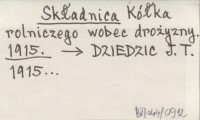 Składnica Kółka
rolniczego wobec drożyzny.
1915. → DZIEDZIC J. T.
1915...